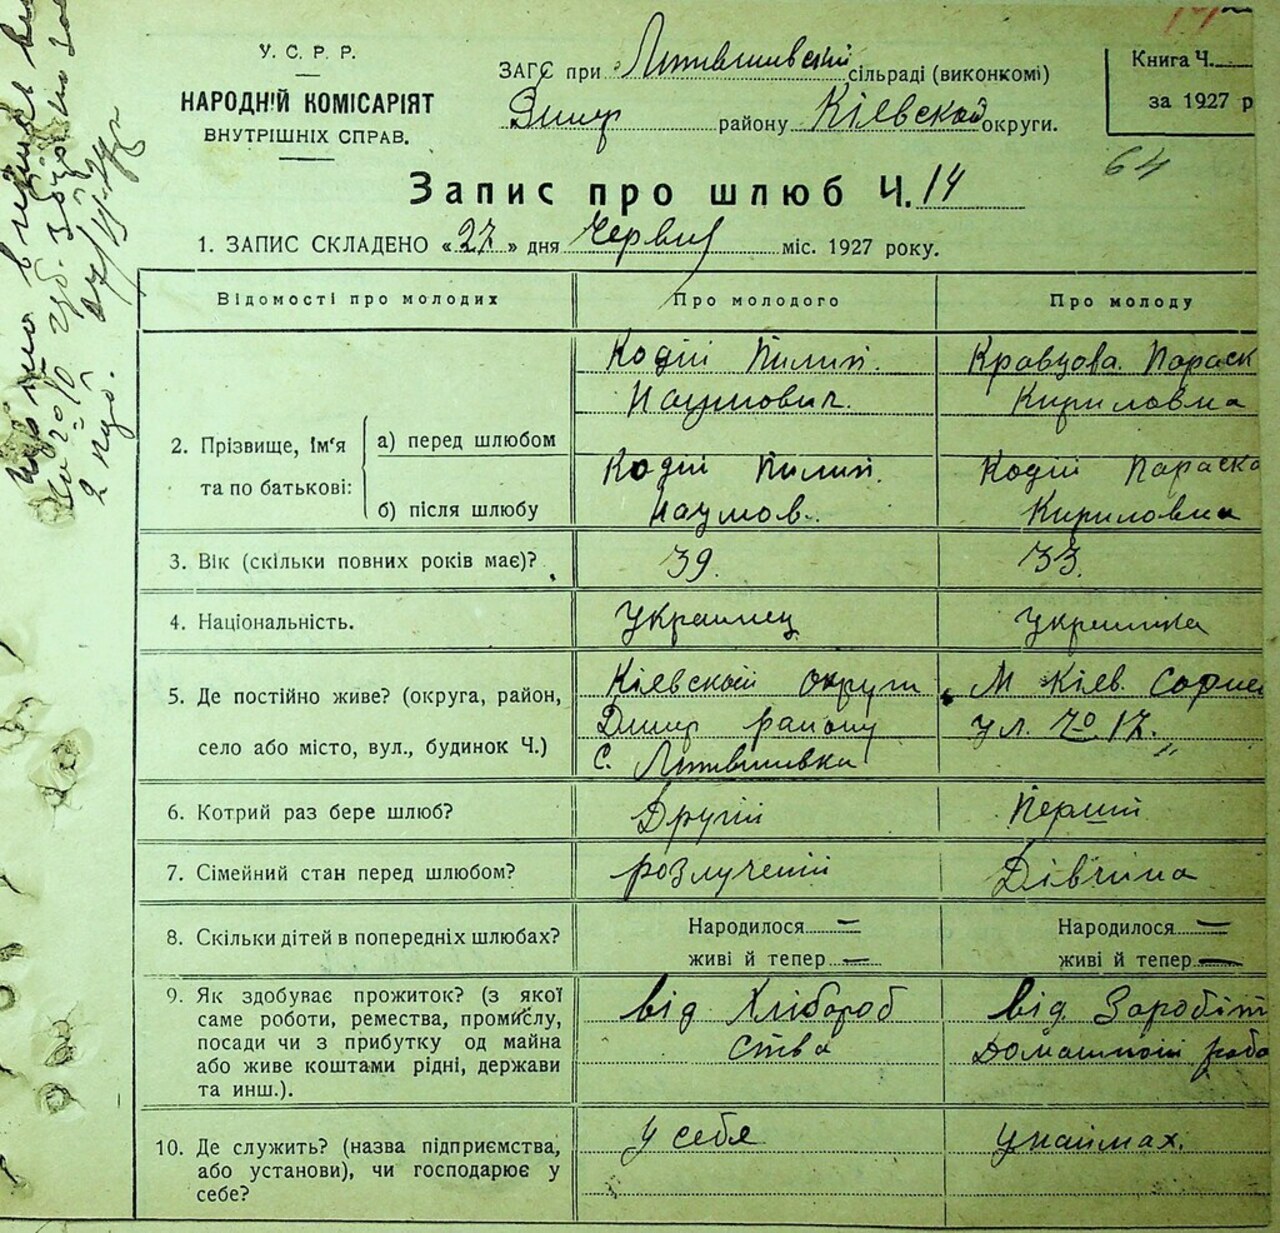 У.С.Р.Р.
НАРОДНІЙ КОМІСАРІЯТ
ВНУТРІШНІХ СПРАВ.
ЗАГС при Литвиновскій сільраді (виконкомі)
Димер району Кіевской округи.
Книга Ч.
за 1927 р
64
Запис про шлюб Ч. 14
1. ЗАПИС СКЛАДЕНО «27» дня Червня міс. 1927 року.
Відомості про молодих Про молодого Про молоду
Кодій Пилип. Кравцова Параск
Наумович. Кириловна
2. Прізвище, ім'я та по батькові: а) перед шлюбом
Кодій Пилип. Кодій Параска
б) після шлюбу Наумов. Кириловна
3. Вік (скільки повних років має)? 39. 33.
4. Національність. Украинец Украинка
5. Де постійно живе? (округа, район, Кіевской округи М Кіев.
село або місто, вул., будинок Ч.) Димер району ул. 17.
С. Литвиновка
6. Котрий раз бере шлюб? Другій Перший
7. Сімейний стан перед шлюбом? розлученій Дівчина
8. Скільки дітей в попередніх шлюбах? Народилося = Народилося =
живі й тепер — живі й тепер —
9. Як здобуває прожиток? (з якої від Хлібороб від Заробіт
саме роботи, ремества, промислу,
посади чи з прибутку од майна ства Домашной робо
або живе коштами рідні, держави
та инш.).
10. Де служить? (назва підприємства, у себе унаймах.
або установи), чи господарює у
себе?